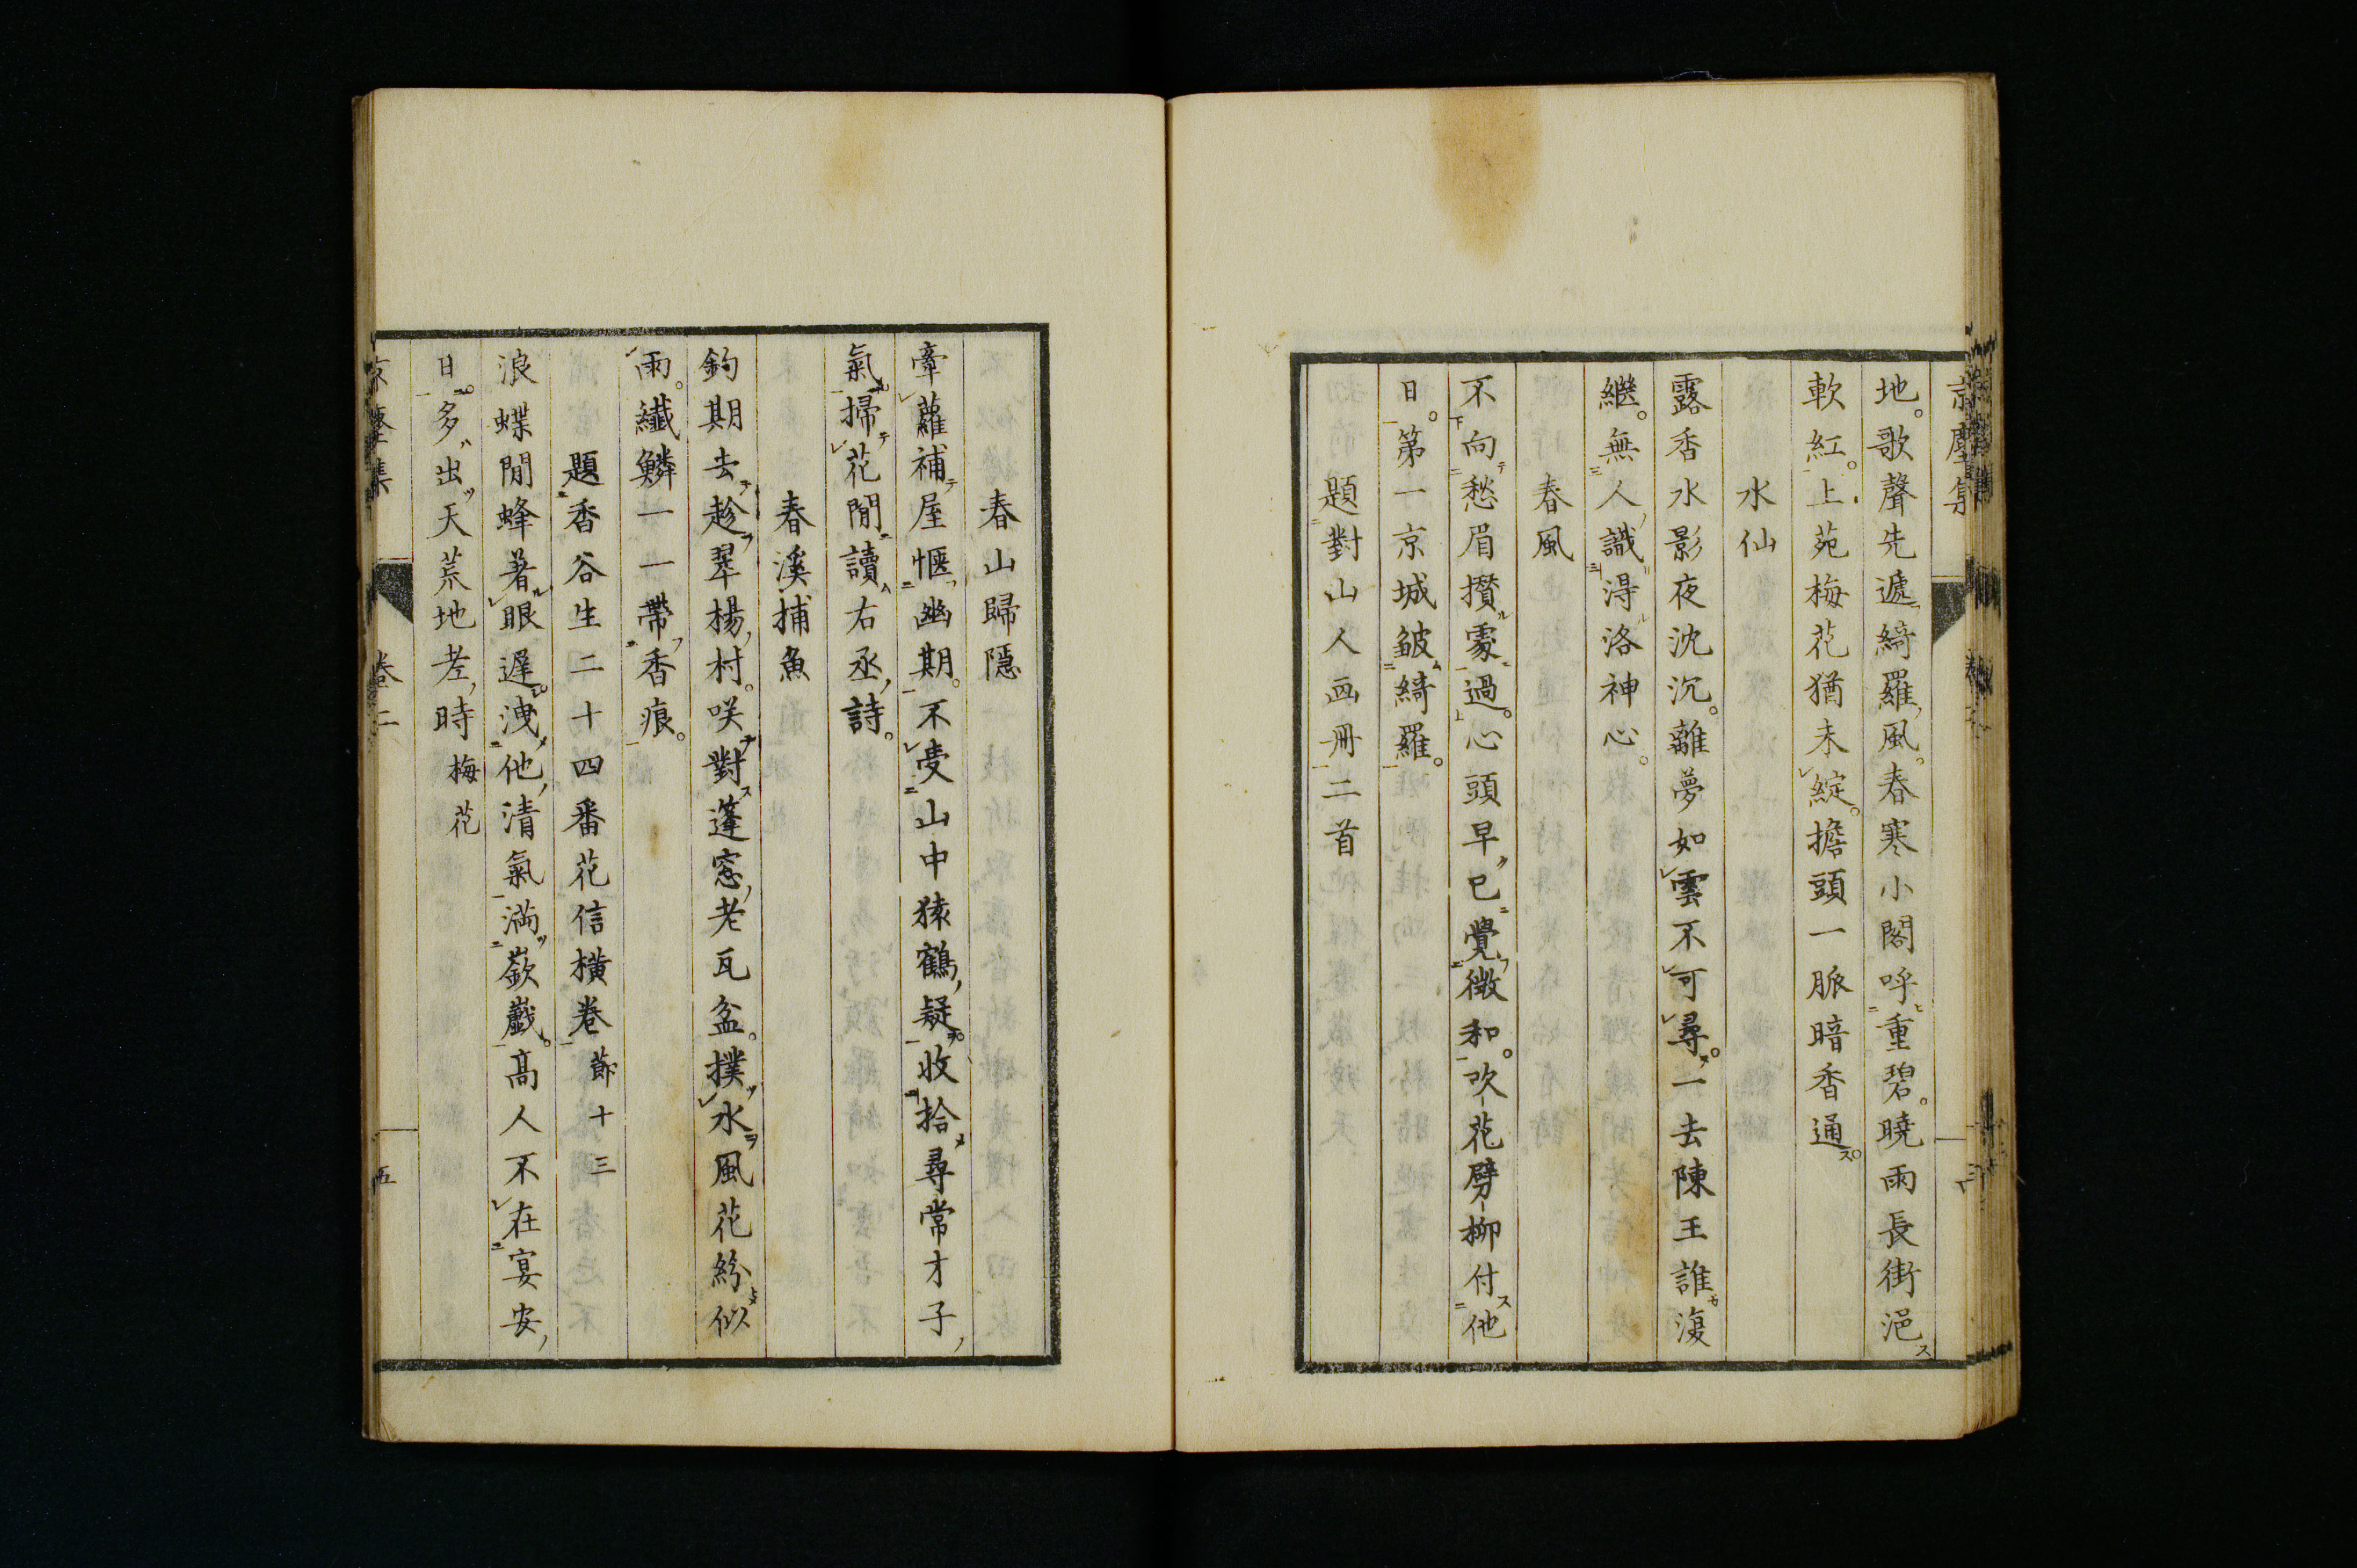 京塵集
地。歌聲先遞綺羅風。春寒小閣呼重碧。曉雨長街浥
軟紅。上苑梅花猶未綻。擔頭一脈暗香通。
水仙
露香水影夜沈沉。離夢如雲不可尋。一去陳王誰復
繼。無人識得洛神心。
春風
不向愁眉攢處過。心頭早已覺微和。吹花劈柳付他
日。第一京城皺綺羅。
題對山人画册二首
春山歸隱
牽蘿補屋愜幽期。不受山中猿鶴疑。收拾尋常才子
氣。掃花閒讀右丞詩。
春溪捕魚
鈎期去趁翠楊村。咲對蓬窓老瓦盆。撲水風花紛似
雨。纎鱗一一帶香痕。
題香谷生二十四番花信横卷 節十三
浪蝶閒蜂著眼遲。洩他清氣満嶔巇。高人不在宴安
日。多出天荒地老時 梅花
卷二
五